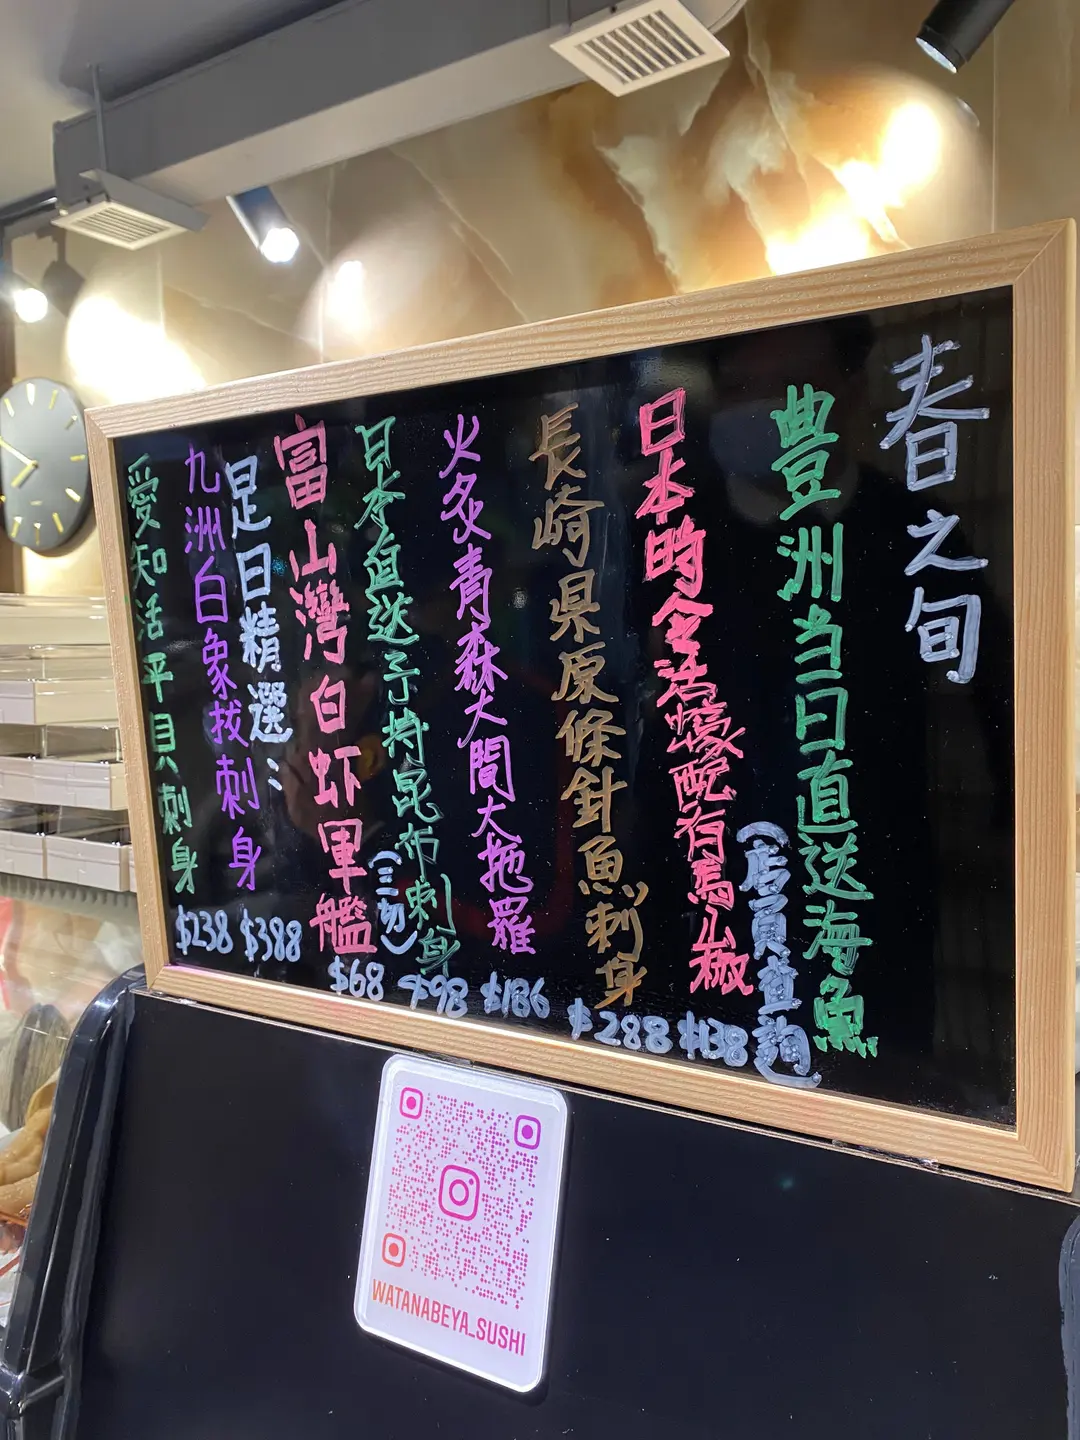 春日之旬
豊洲当日直送海魚
(店員查詢)
日本時令活蠔配有馬山椒
$138
長崎県原條針魚刺身
$288
火炙青森大間大拖羅
$186
日本直送子持昆布刺身
(三切)
$98
富山灣白虾軍艦
$68
是日精選:
九洲白象拔刺身
$388
愛知活平貝刺身
$238
WATANABEYA_SUSHI